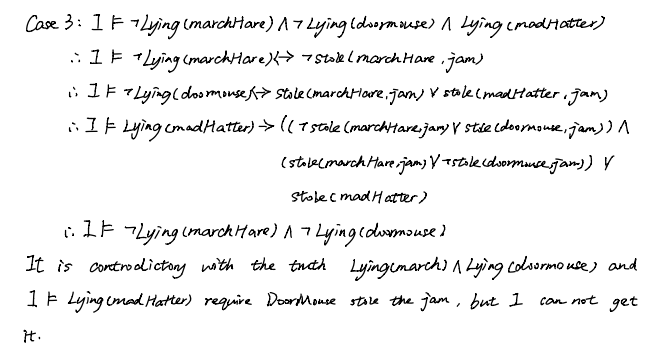 Case 3: I ⊨ ¬Lying(marchHare) ∧ ¬Lying(doormouse) ∧ Lying(madHatter)
∴ I ⊨ ¬Lying(marchHare) ↔ ¬stole(marchHare, jam)
∴ I ⊨ ¬Lying(doormouse) ↔ stole(marchHare, jam) ∨ stole(madHatter, jam)
∴ I ⊨ Lying(madHatter) → ((¬stole(marchHare, jam) ∨ stole(doormouse, jam)) ∧
(stole(marchHare, jam) ∨ ¬stole(doormouse, jam)) ∨
stole(madHatter)
∴ I ⊨ ¬Lying(marchHare) ∧ ¬Lying(doormouse)
It is controdictory with the truth Lying(march) ∧ Lying(doormouse) and
I ⊨ Lying(madHatter) require DoorMouse stole the jam, but I can not get
it.